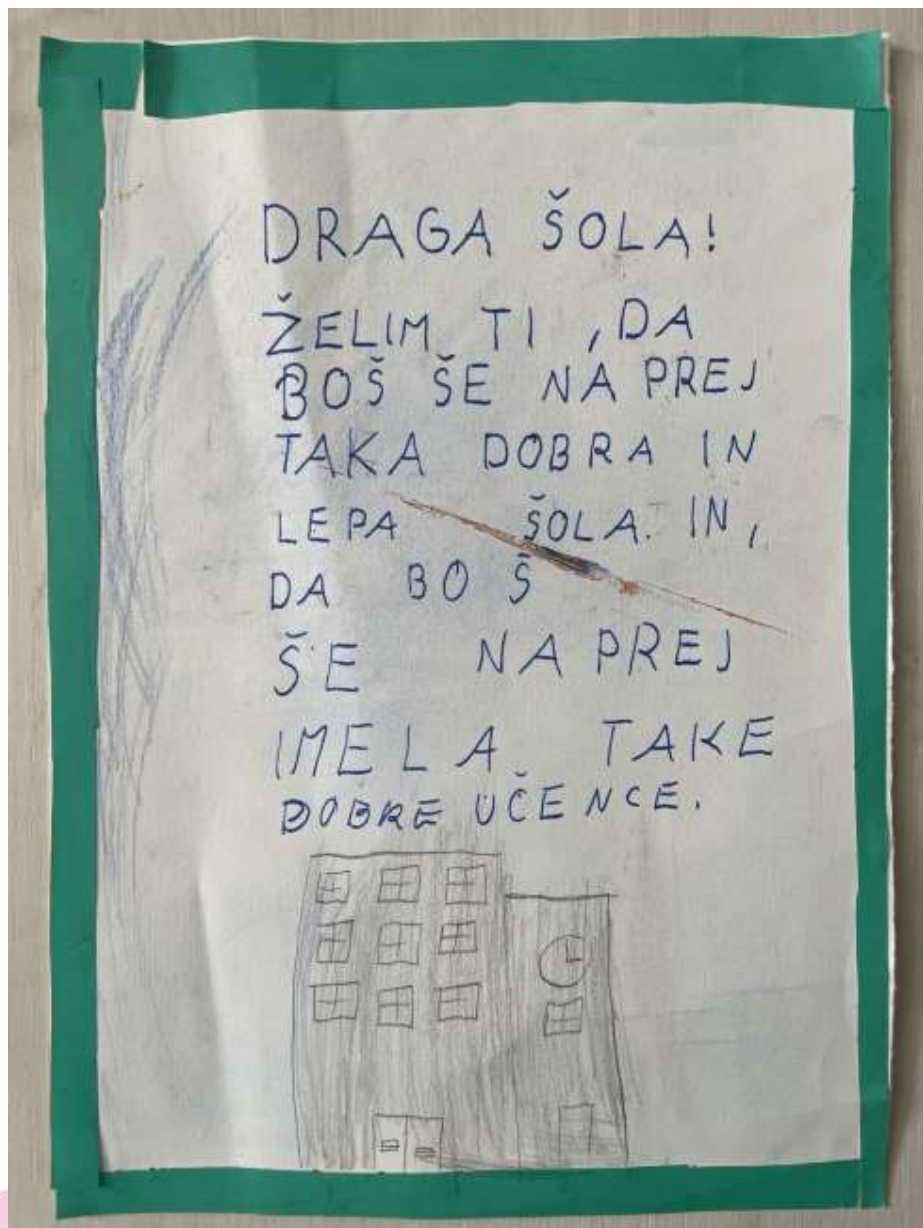 DRAGA ŠOLA!
ŽELIM TI , DA
BOŠ ŠE NA PREJ
TAKA DOBRA IN
LEPA ŠOLA. IN,
DA BO Š
ŠE NA PREJ
IMELA TAKE
DOBRE UČENCE.